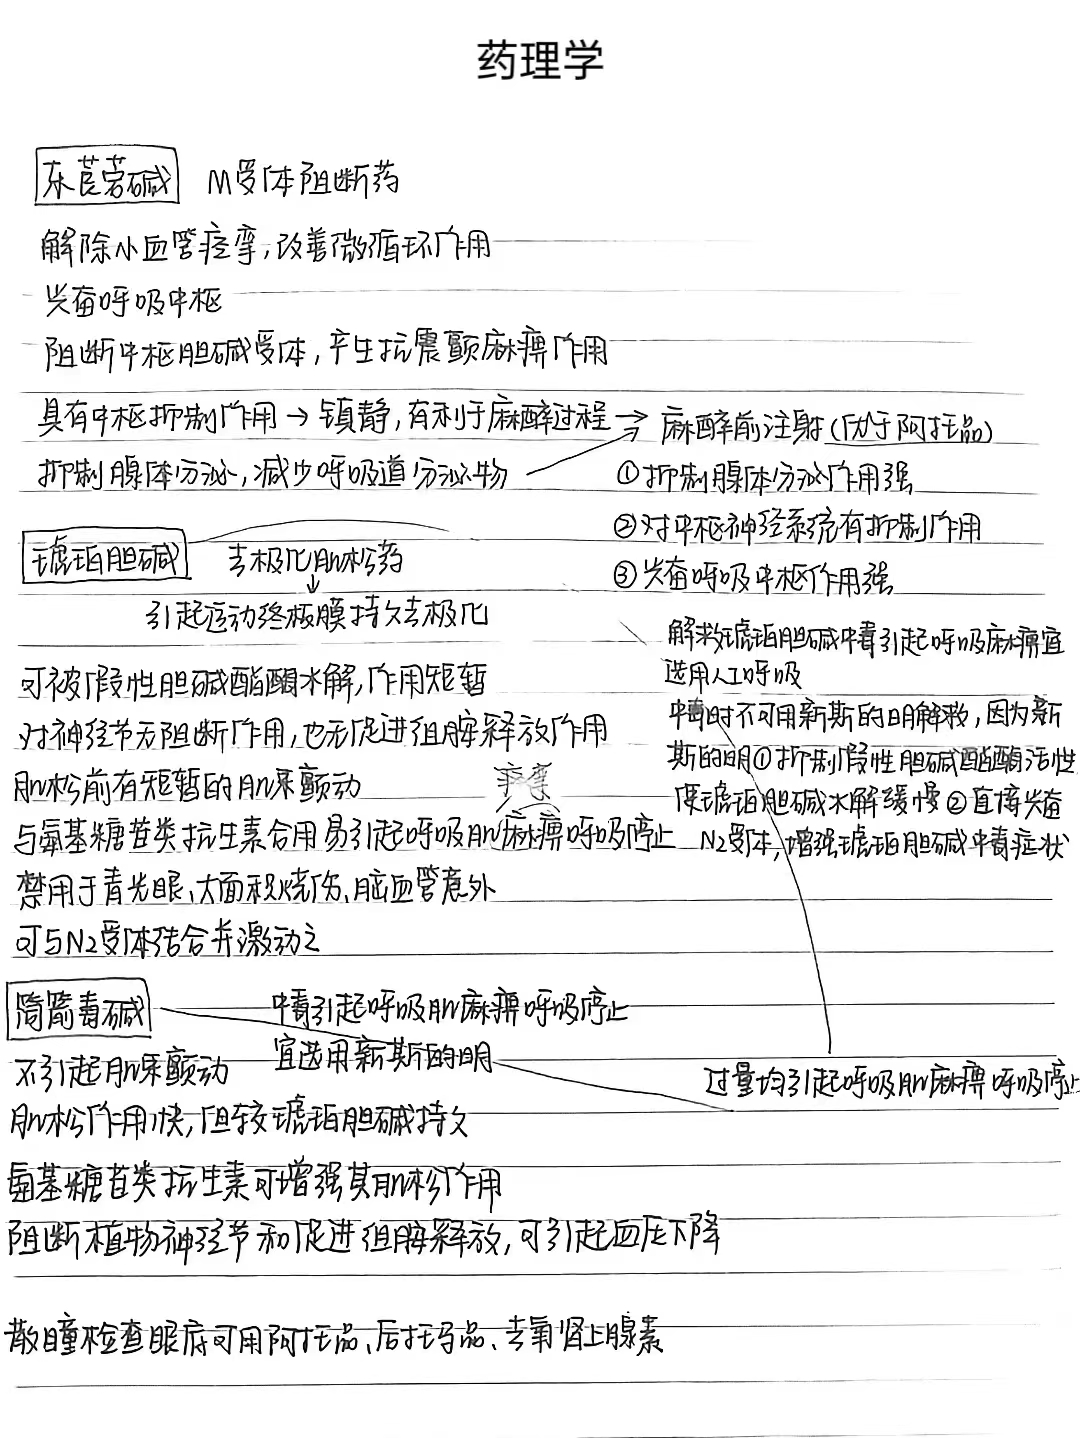 药理学
东莨菪碱 M受体阻断药
解除小血管痉挛,改善微循环作用
兴奋呼吸中枢
阻断中枢胆碱受体,产生抗震颤麻痹作用
具有中枢抑制作用→镇静,有利于麻醉过程→麻醉前注射(优于阿托品)
抑制腺体分泌,减少呼吸道分泌物
①抑制腺体分泌作用强
②对中枢神经系统有抑制作用
③兴奋呼吸中枢作用强
琥珀胆碱 去极化肌松药
↓
引起运动终板膜持久去极化
可被假性胆碱酯酶水解,作用短暂
对神经节无阻断作用,也无促进组胺释放作用
肌松前有短暂的肌束颤动
痉挛
与氨基糖苷类抗生素合用易引起呼吸肌麻痹呼吸停止
禁用于青光眼、大面积烧伤、脑血管意外
可与N2受体结合并激动之
解救琥珀胆碱中毒引起呼吸麻痹宜
选用人工呼吸
中毒时不可用新斯的明解救,因为新
斯的明①抑制假性胆碱酯酶活性
使琥珀胆碱水解缓慢②直接兴奋
N2受体,增强琥珀胆碱中毒症状
筒箭毒碱 中毒引起呼吸肌麻痹呼吸停止
宜选用新斯的明
不引起肌束颤动
过量均引起呼吸肌麻痹呼吸停止
肌松作用快,但较琥珀胆碱持久
氨基糖苷类抗生素可增强其肌松作用
阻断植物神经节和促进组胺释放,可引起血压下降
散瞳检查眼底可用阿托品、后托马品、去氧肾上腺素